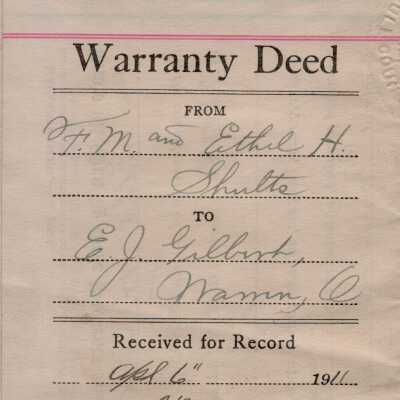 Warranty Deed
FROM
F. M. and Ethel H.
Shults
TO
E. J. Gilbert,
Warren, O
Received for Record
Apl 6" 1911